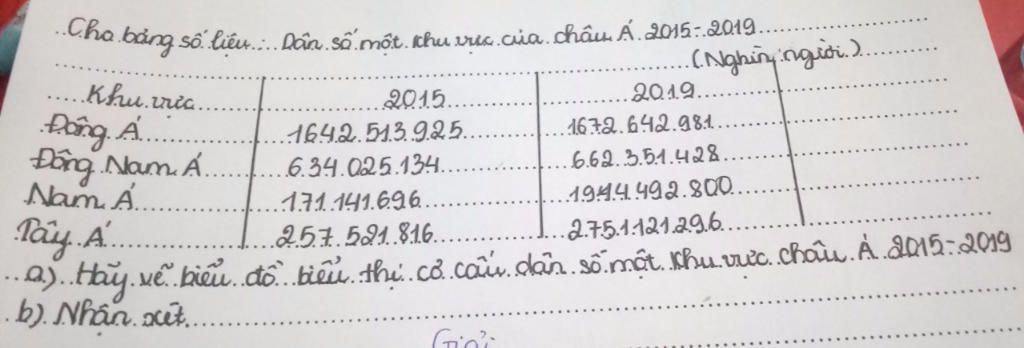 Cho bảng số liệu: Dân số một khu vực của châu Á 2015-2019
(Nghìn người)
Khu vực 2015 2019
Đông Á 1642.513.925 1672.642.981
Đông Nam Á 634.025.134 662.351.428
Nam Á 171.141.696 1944.492.800
Tây Á 257.521.816 275.1.121.296
a) Hãy vẽ biểu đồ biểu thị cơ cấu dân số một khu vực châu Á 2015-2019
b) Nhận xét
Giải